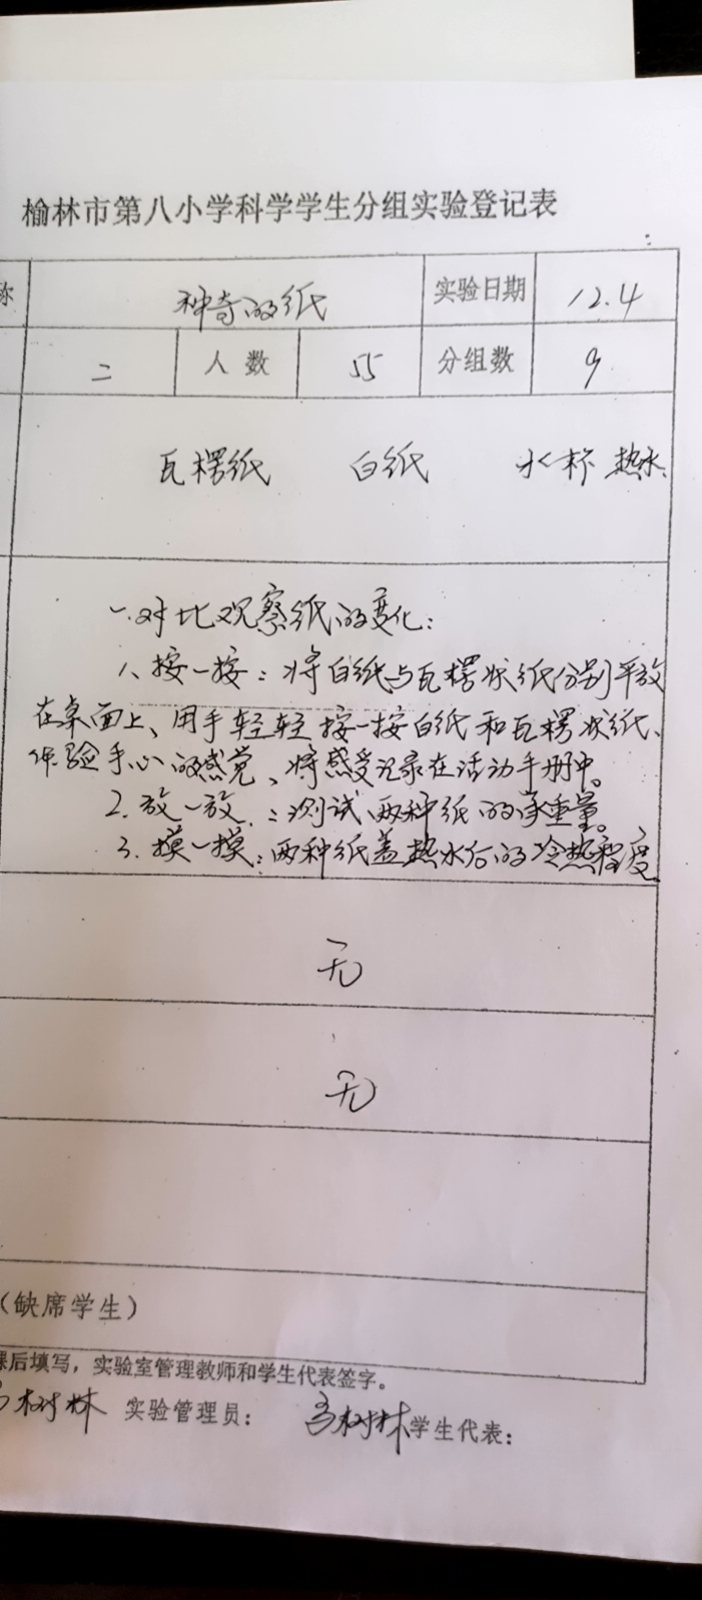 榆林市第八小学科学学生分组实验登记表
称 神奇的纸 实验日期 12.4
二 人数 55 分组数 9
瓦楞纸 白纸 水杯 热水
一.对比观察纸的变化:
1、按一按:将白纸与瓦楞状纸分别平放
在桌面上、用手轻轻按一按白纸和瓦楞状纸、
体验手心的感觉、将感受记录在活动手册中。
2.放一放.:测试两种纸的承重量。
3.摸一摸:两种纸盖热水后的冷热程度
无
无
(缺席学生)
课后填写,实验室管理教师和学生代表签字。
树林 实验管理员: 树林 学生代表: